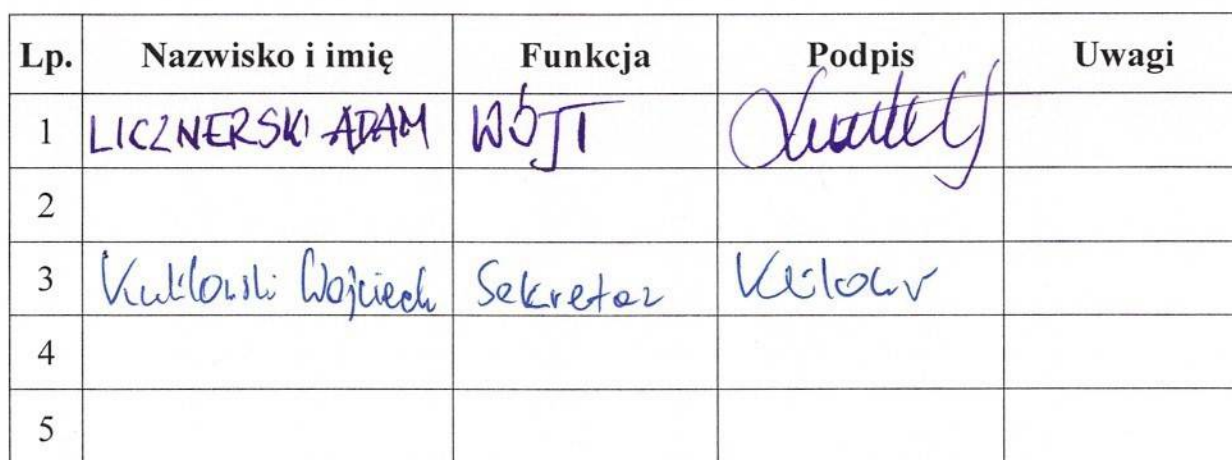 Lp. Nazwisko i imię Funkcja Podpis Uwagi
1 LICZNERSKI ADAM WÓJT
2
3 Wojciech Sekretarz
4
5